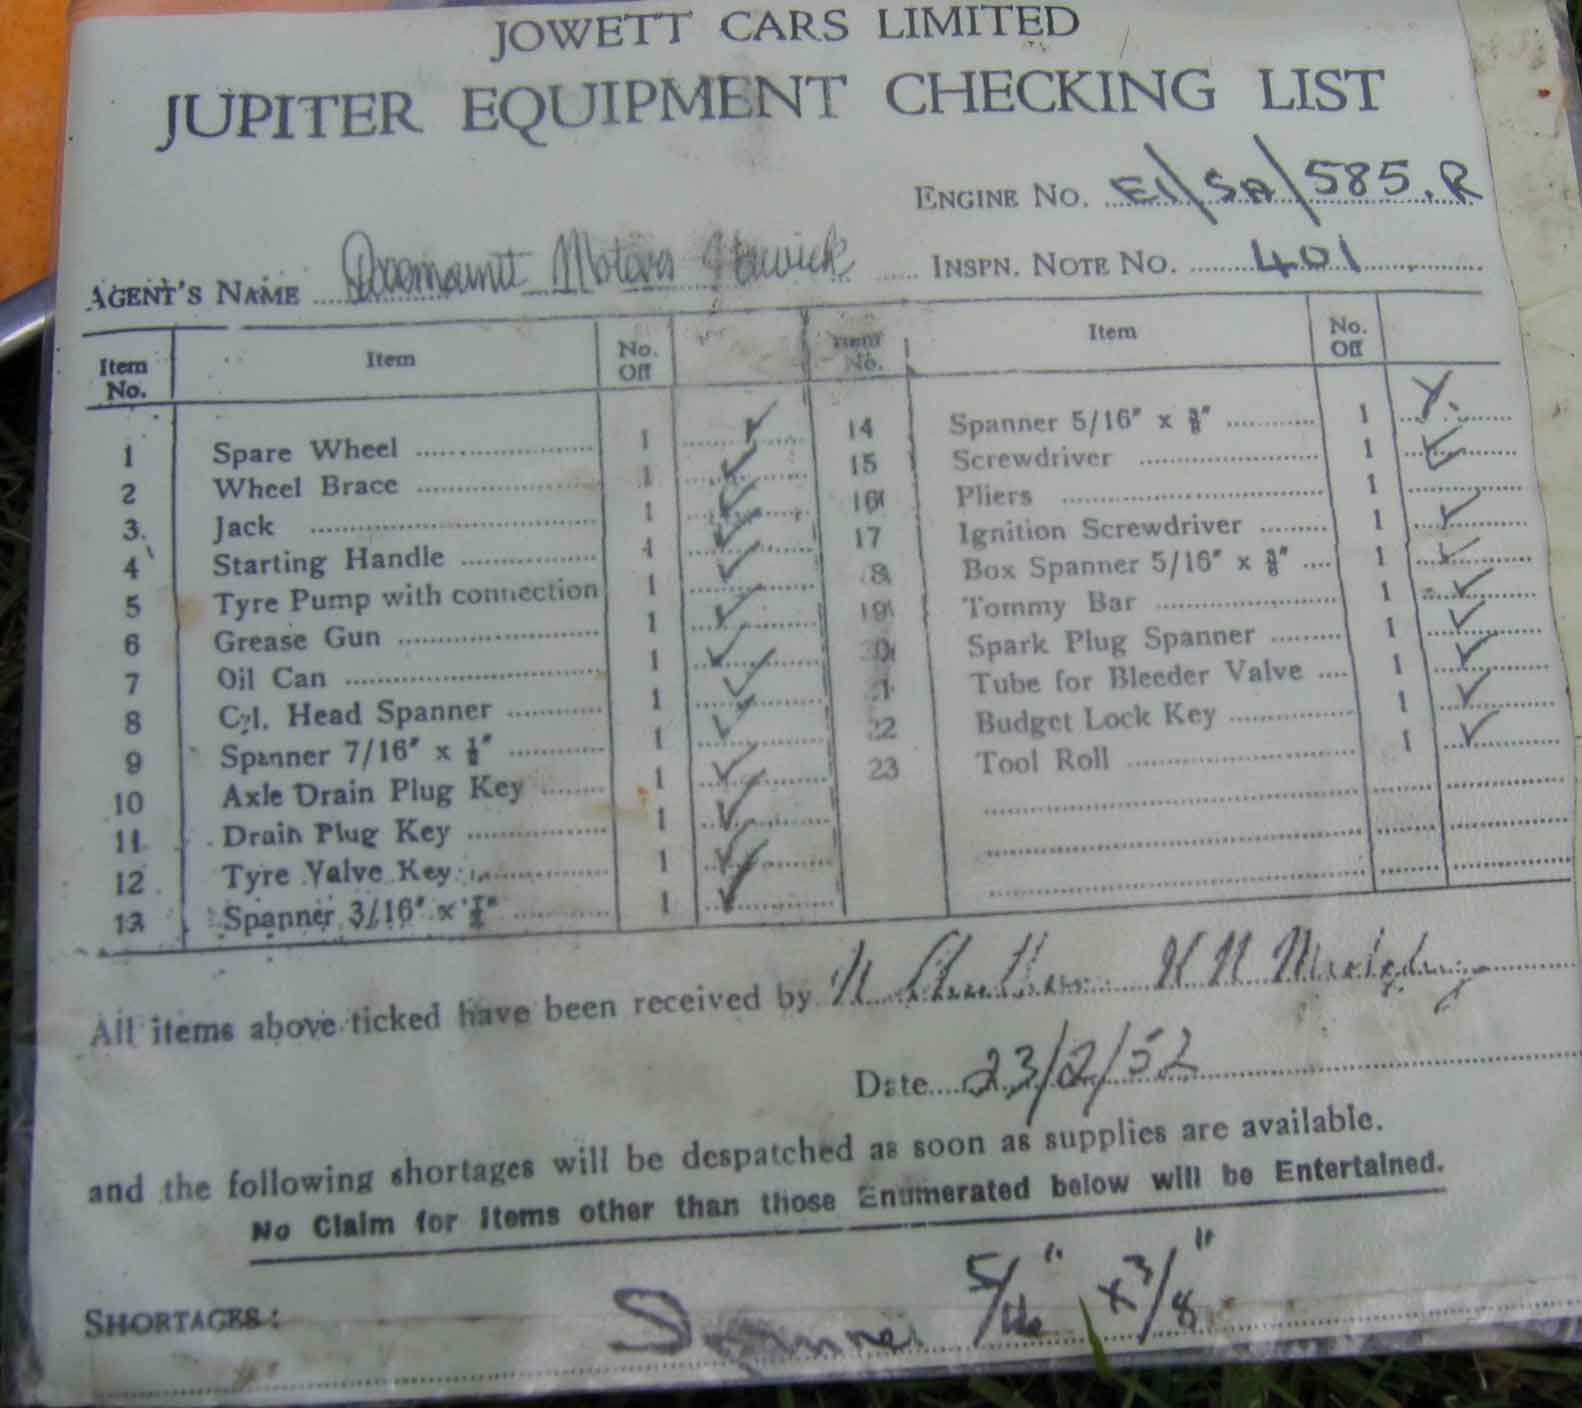 JOWETT CARS LIMITED
JUPITER EQUIPMENT CHECKING LIST
ENGINE No. E1\SA\585.R
AGENT'S NAME Motors Hawick INSPN. NOTE NO. 401
Item No. Item No. Off Item No. Item No. Off
1 Spare Wheel 1 ✓
2 Wheel Brace 1 ✓
3. Jack 1 ✓
4 Starting Handle 1 ✓
5 Tyre Pump with connection 1 ✓
6 Grease Gun 1 ✓
7 Oil Can 1 ✓
8 Cyl. Head Spanner 1 ✓
9 Spanner 7/16" x ½" 1 ✓
10 Axle Drain Plug Key 1 ✓
11 Drain Plug Key 1 ✓
12 Tyre Valve Key 1 ✓
13 Spanner 3/16" x ¼" 1 ✓
14 Spanner 5/16" x ⅜" 1 X.
15 Screwdriver 1 ✓
16 Pliers 1
17 Ignition Screwdriver 1 ✓
8 Box Spanner 5/16" x ⅜" 1 ✓
19 Tommy Bar 1 ✓
0 Spark Plug Spanner 1 ✓
1 Tube for Bleeder Valve 1 ✓
22 Budget Lock Key 1 ✓
23 Tool Roll 1 ✓
All items above ticked have been received by
Date 23/2/52
and the following shortages will be despatched as soon as supplies are available.
No Claim for Items other than those Enumerated below will be Entertained.
SHORTAGES: Spanner 5/16" x 3/8"